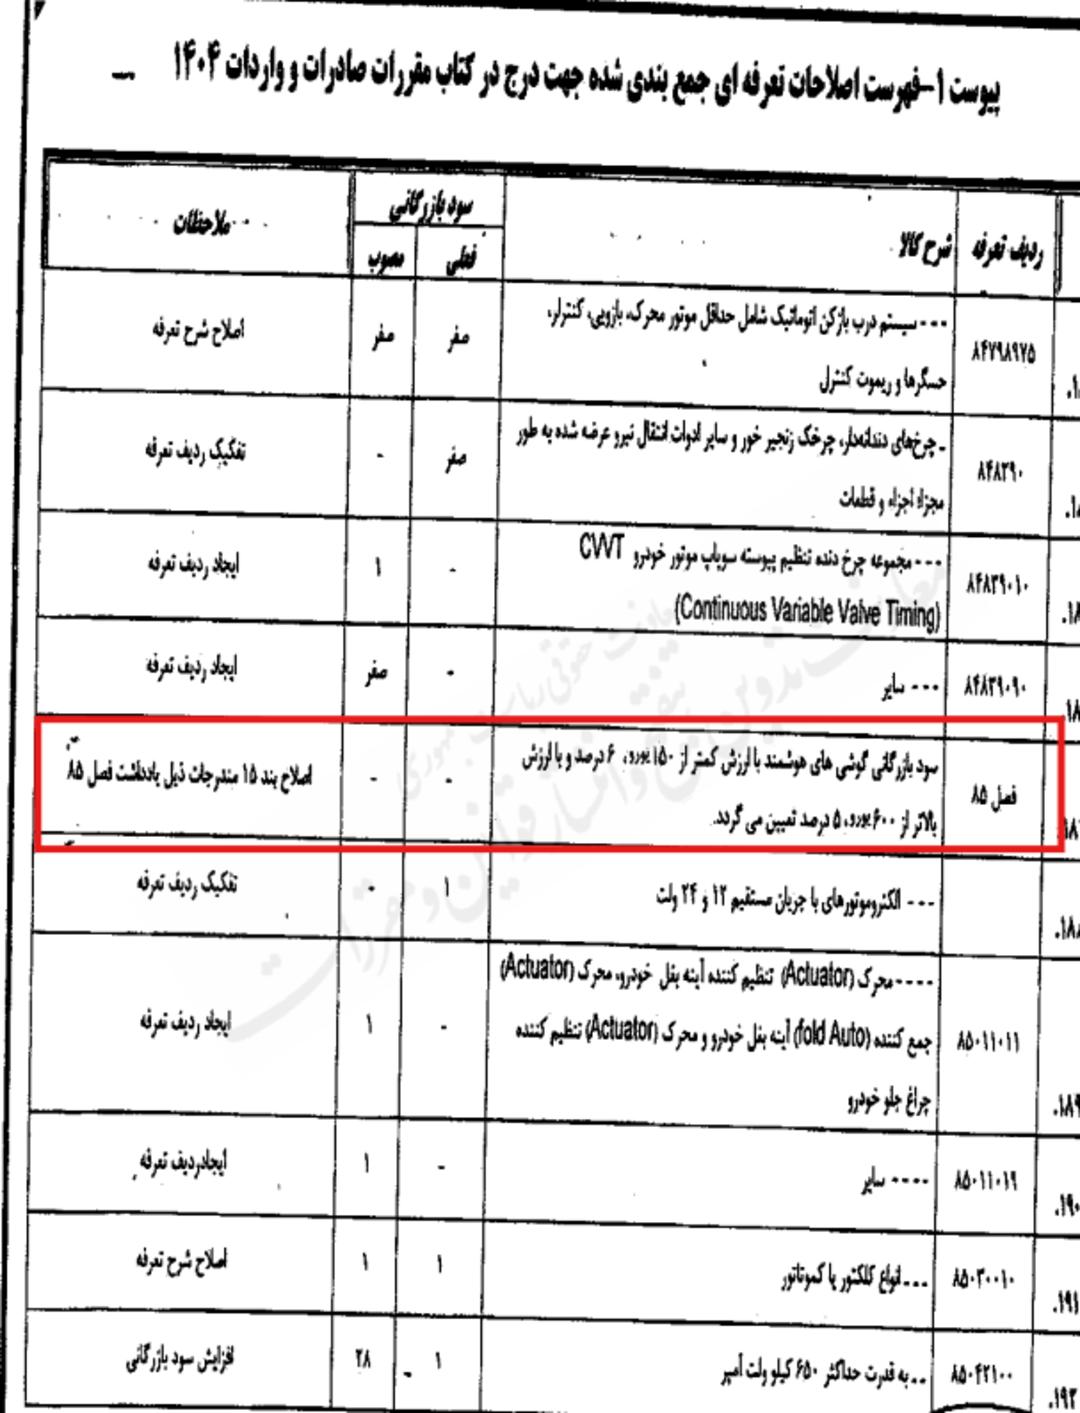 پیوست ۱-فهرست اصلاحات تعرفه ای جمع بندی شده جهت درج در کتاب مقررات صادرات و واردات ۱۴۰۴
ردیف تعرفه شرح کالا سود بازرگانی ملاحظات
فعلی مصوب
۸۴۷۹۸۹۷۵ --- سیستم درب بازکن اتوماتیک شامل حداقل موتور محرک، بازویی، کنترلر، صفر صفر اصلاح شرح تعرفه
حسگرها و ریموت کنترل
۸۴۸۳۹۰ ـ چرخ‌های دندانه‌دار، چرخک زنجیر خور و سایر ادوات انتقال نیرو عرضه شده به طور صفر - تفکیک ردیف تعرفه
مجزا؛ اجزاء و قطعات
۸۴۸۳۹۰۱۰ --- مجموعه چرخ دنده تنظیم پیوسته سوپاپ موتور خودرو CVVT - ۱ ایجاد ردیف تعرفه
(Continuous Variable Valve Timing)
۸۴۸۳۹۰۹۰ --- سایر - صفر ایجاد ردیف تعرفه
فصل ۸۵ سود بازرگانی گوشی های هوشمند با ارزش کمتر از ۱۵۰ یورو، ۶ درصد و با ارزش - - اصلاح بند ۱۵ مندرجات ذیل یادداشت فصل ۸۵
بالاتر از ۶۰۰ یورو، ۵ درصد تعیین می گردد.
--- الکتروموتورهای با جریان مستقیم ۱۲ و ۲۴ ولت ۱ - تفکیک ردیف تعرفه
۸۵۰۱۱۰۱۱ ---- محرک (Actuator) تنظیم کننده آینه بغل خودرو، محرک (Actuator) - ۱ ایجاد ردیف تعرفه
جمع کننده (fold Auto) آینه بغل خودرو و محرک (Actuator) تنظیم کننده
چراغ جلو خودرو
۱۸۹. ۸۵۰۱۱۰۱۹ ---- سایر - ۱ ایجادردیف تعرفه
۱۹۰.
۸۵۰۳۰۰۱۰ --- انواع کلکتور یا کموتاتور ۱ ۱ اصلاح شرح تعرفه
۱۹۱.
۸۵۰۴۲۱۰۰ -- به قدرت حداکثر ۶۵۰ کیلو ولت آمپر ۱ ۲۸ افزایش سود بازرگانی
۱۹۲.